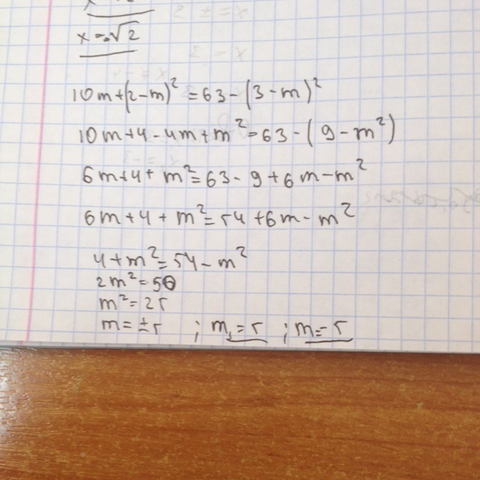 x=-√2
10m+(2-m)²=63-(3-m)²
10m+4-4m+m²=63-(9-m²)
6m+4+m²=63-9+6m-m²
6m+4+m²=54+6m-m²
4+m²=54-m²
2m²=50
m²=25
m=±5 ; m₁=5 ; m=-5